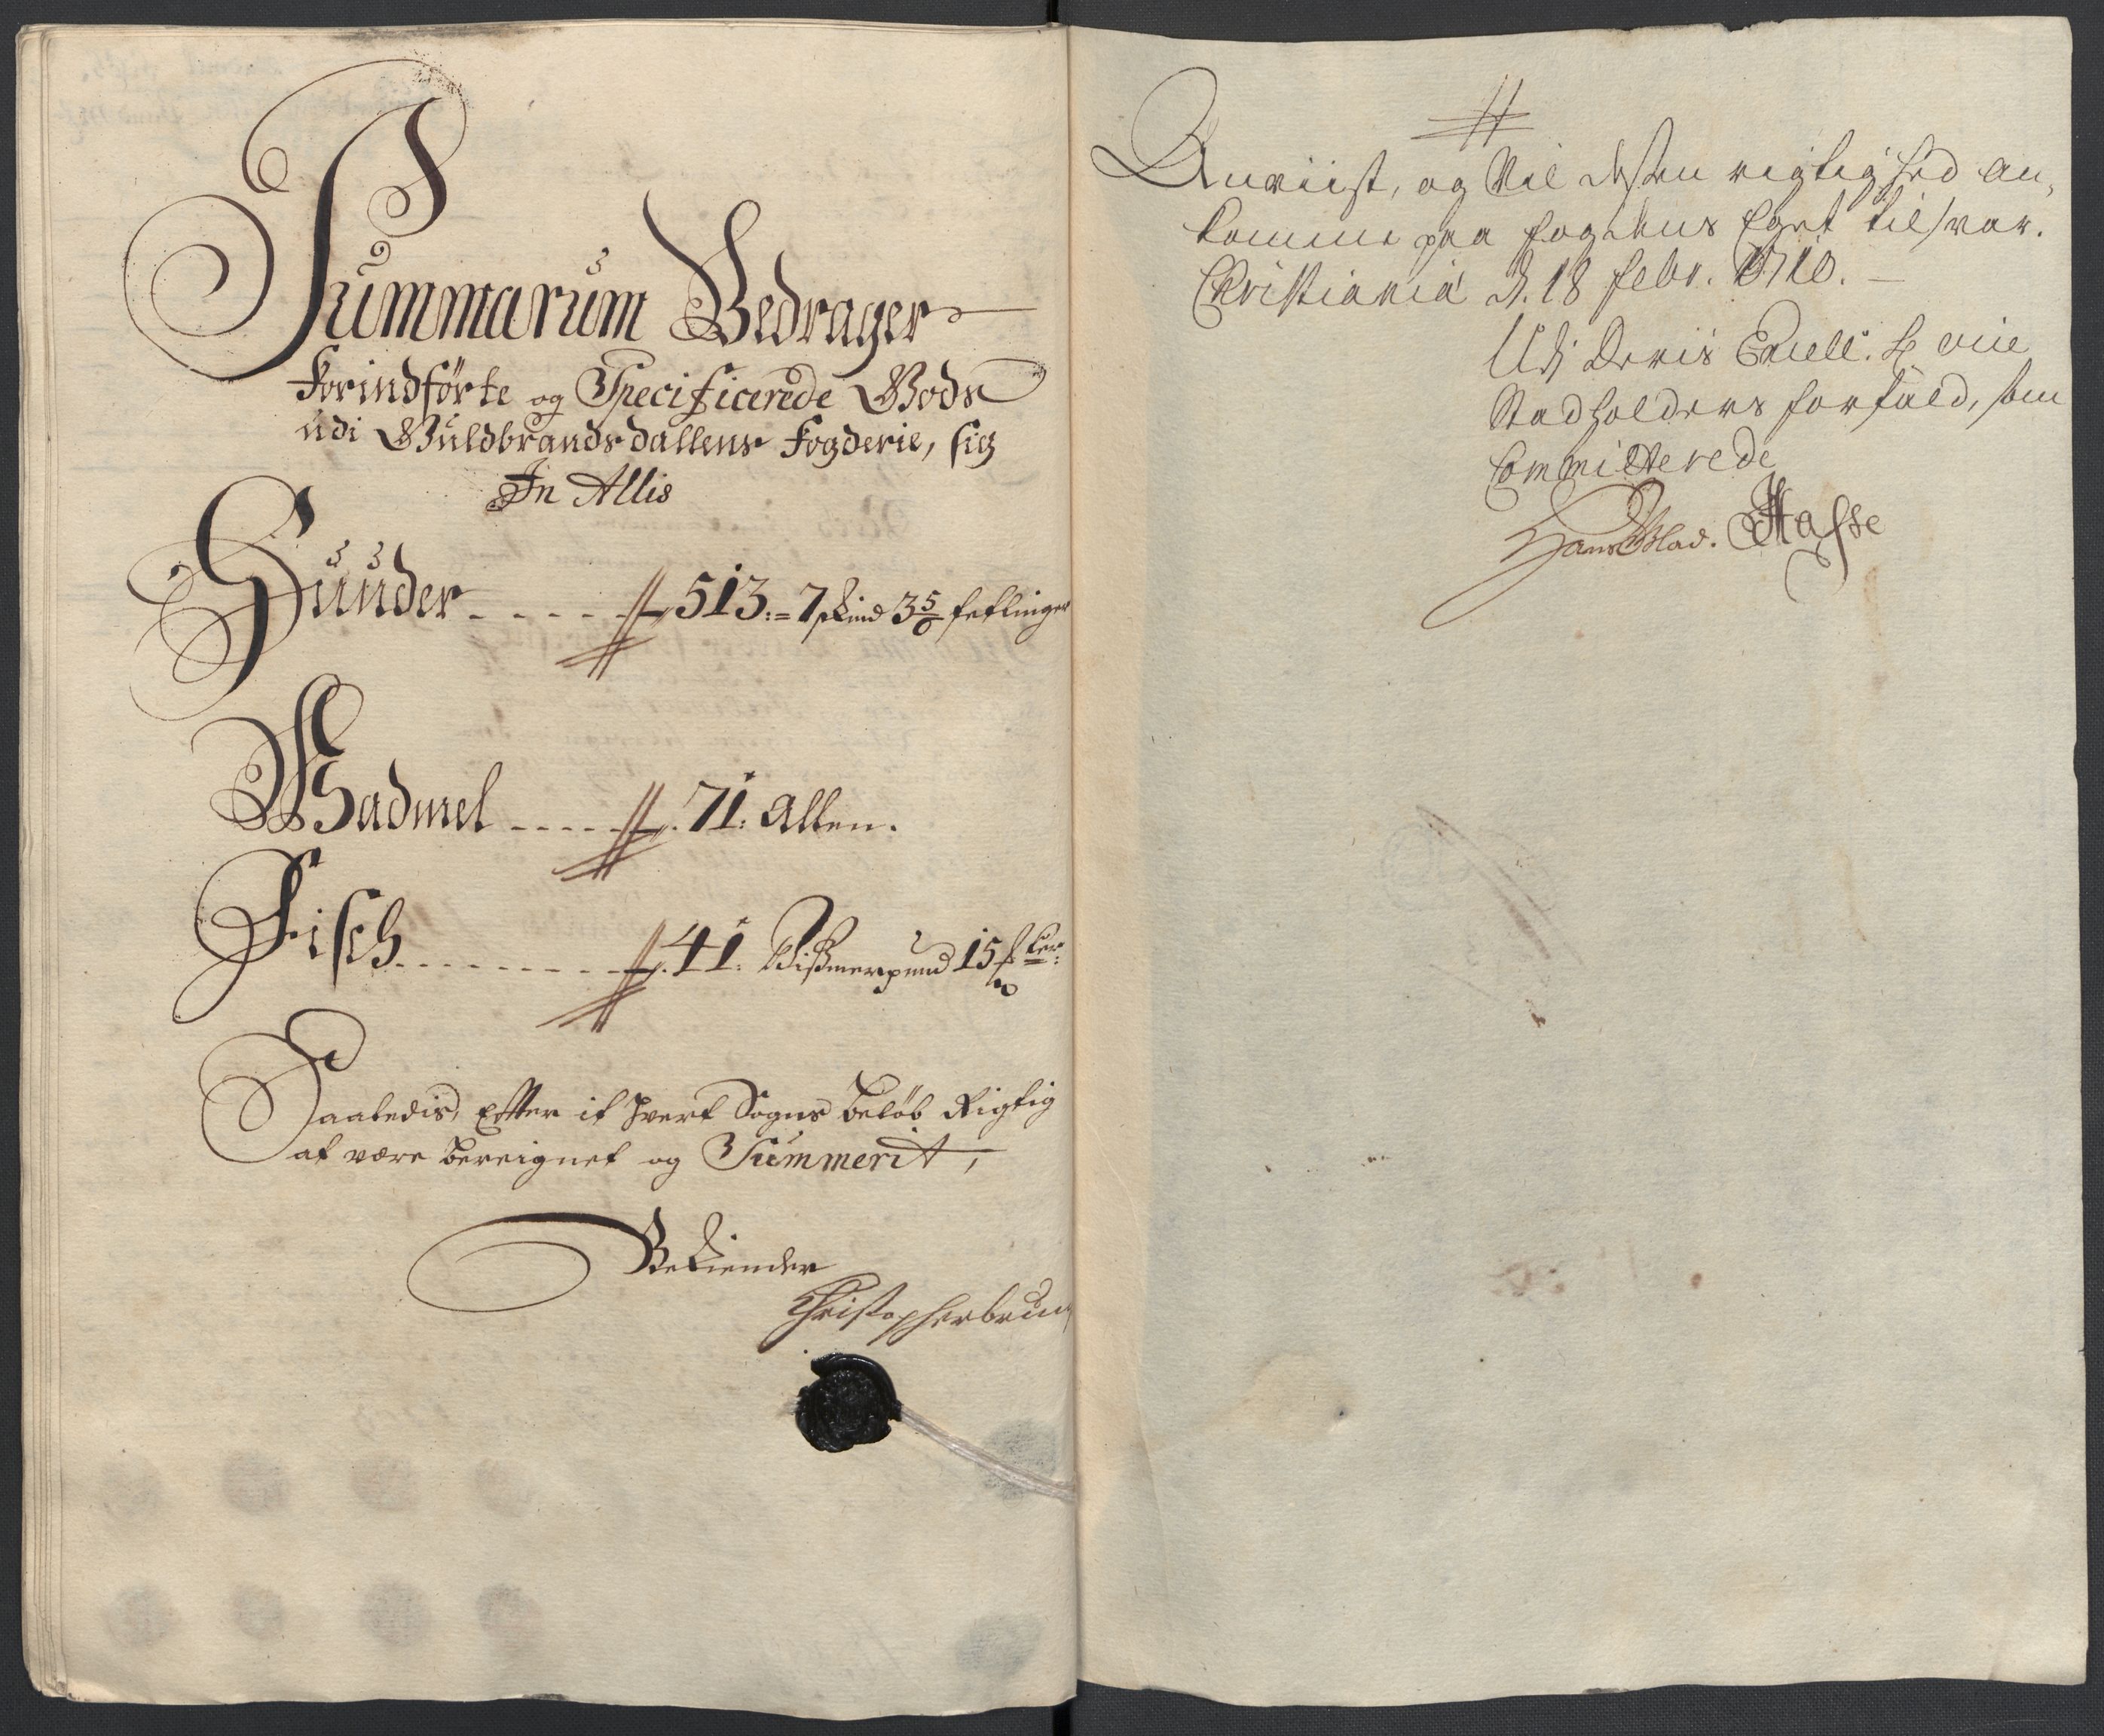 Summarum Bedrager
Forindförte og Specificerede Gods
udi Guldbrandsdallens Fogderie, sig
In Allis
Huuder - - - - - 513:= 7 skind 3 5/6 feflinger
Wadmel - - - - - 71: Allen.
Fisch - - - - - - - - 41: Wißmerpund 15
Saaledis, Efter it hvert Sogns beløb Rigtig
at være bereignet og Summerit,
Bekiender
Christopher brun
Anviist, og Vil dessen rigtighed an,
komme paa fogdens Eget tilsvar.
Christiania d. 18 febr. 1710.
Udj Deris Excell:
Stadholders forfald, som
Committerede
Hans Blad. Hasse